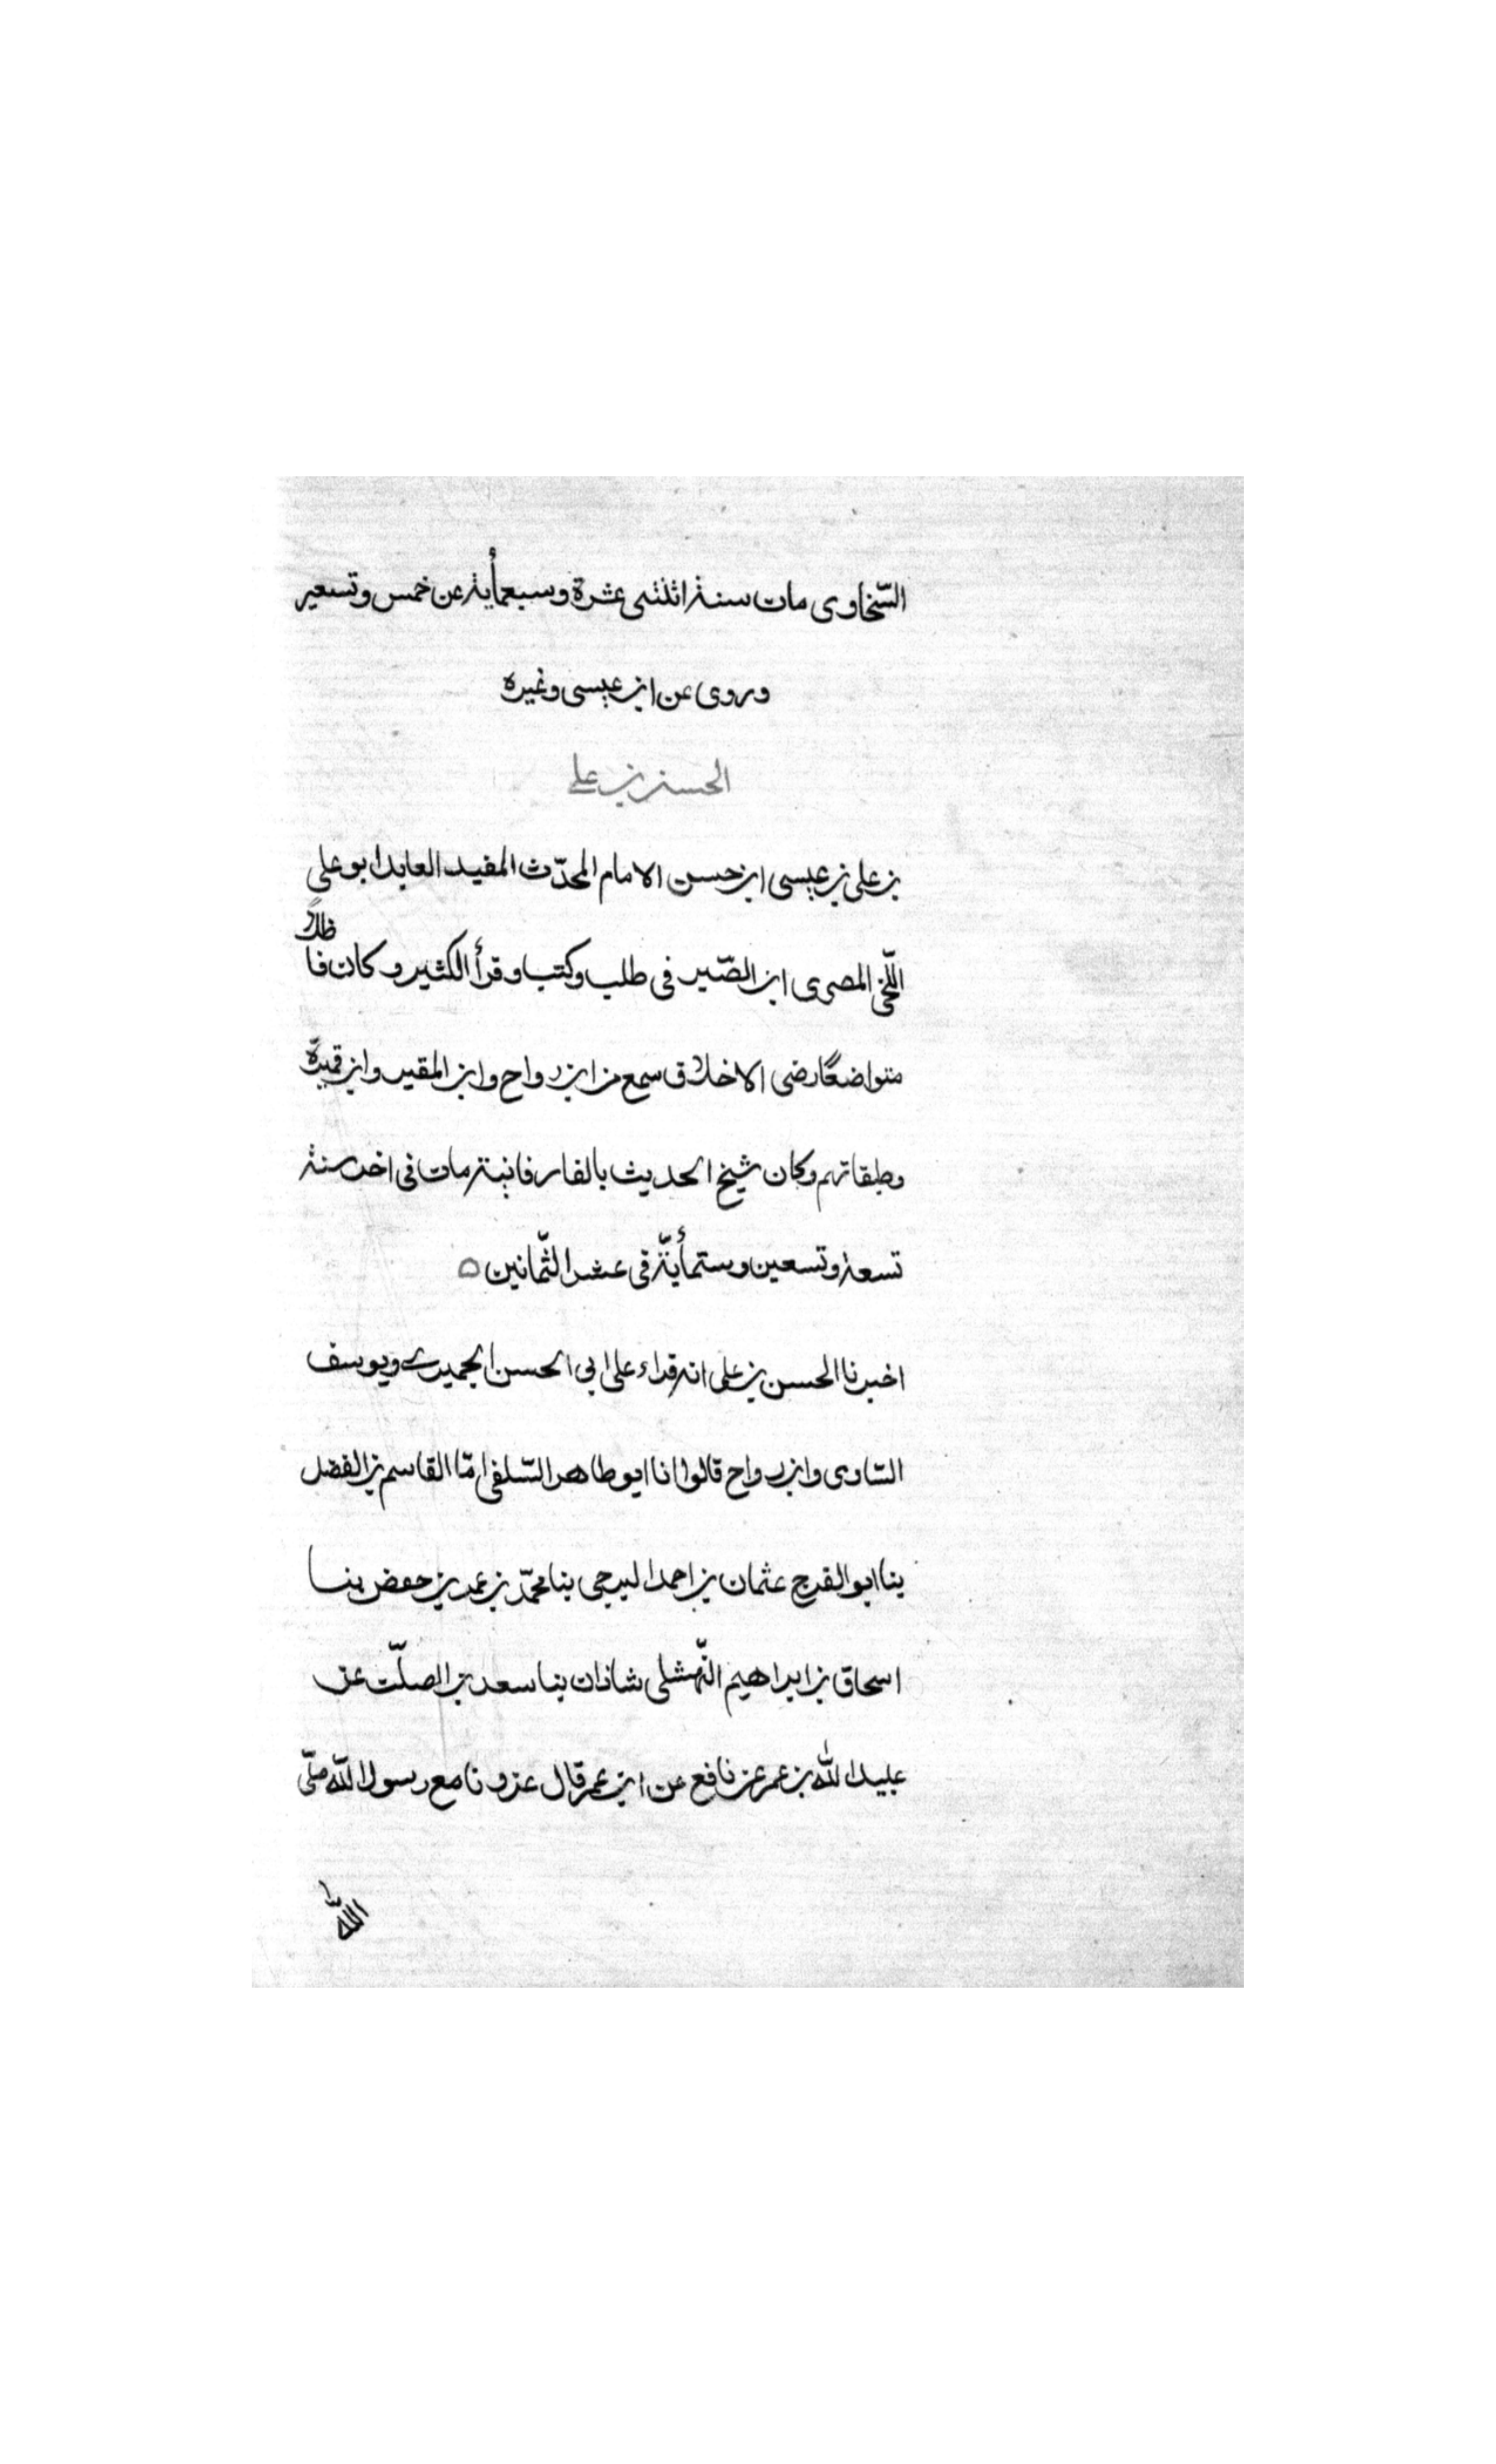 السّخاوى مات سنة اثنتى عشرة وسبعمأية عن خمس وتسعين
وروى عن ابن عيسى وغيره
الحسن بن على
بن على بن عيسى ابن حسن الامام المحدّث المفيد العابد ابو على
اللّخمى المصرى ابن الصّيرفى طلب وكتب وقرأ الكثير وكان فاضلاً
متواضعًا رضى الاخلاق سمع من ابن رواح وابن المقير وابن قميرة
وطبقاتهم وكان شيخ الحديث بالفارقانية مات فى اخر سنة
تسعة وتسعين وستمأيّة فى عشر الثّمانين ه
اخبرنا الحسن بن على انه قراء على ابى الحسن الجميزى ويوسف
السّاوى وابن رواح قالوا انا ابو طاهر السّلفى القاسم بن الفضل
بنا ابو الفرج عثمان بن احمد البرجى بنا محمّد بن عمر بن حفص بنا
اسحاق بن ابراهيم النّهشلى شاذان بنا سعد بن الصلّت عن
عبيد الله بن عمر عن نافع عن ابن عمر قال غزونا مع رسول اللّه صلّى
اللّه